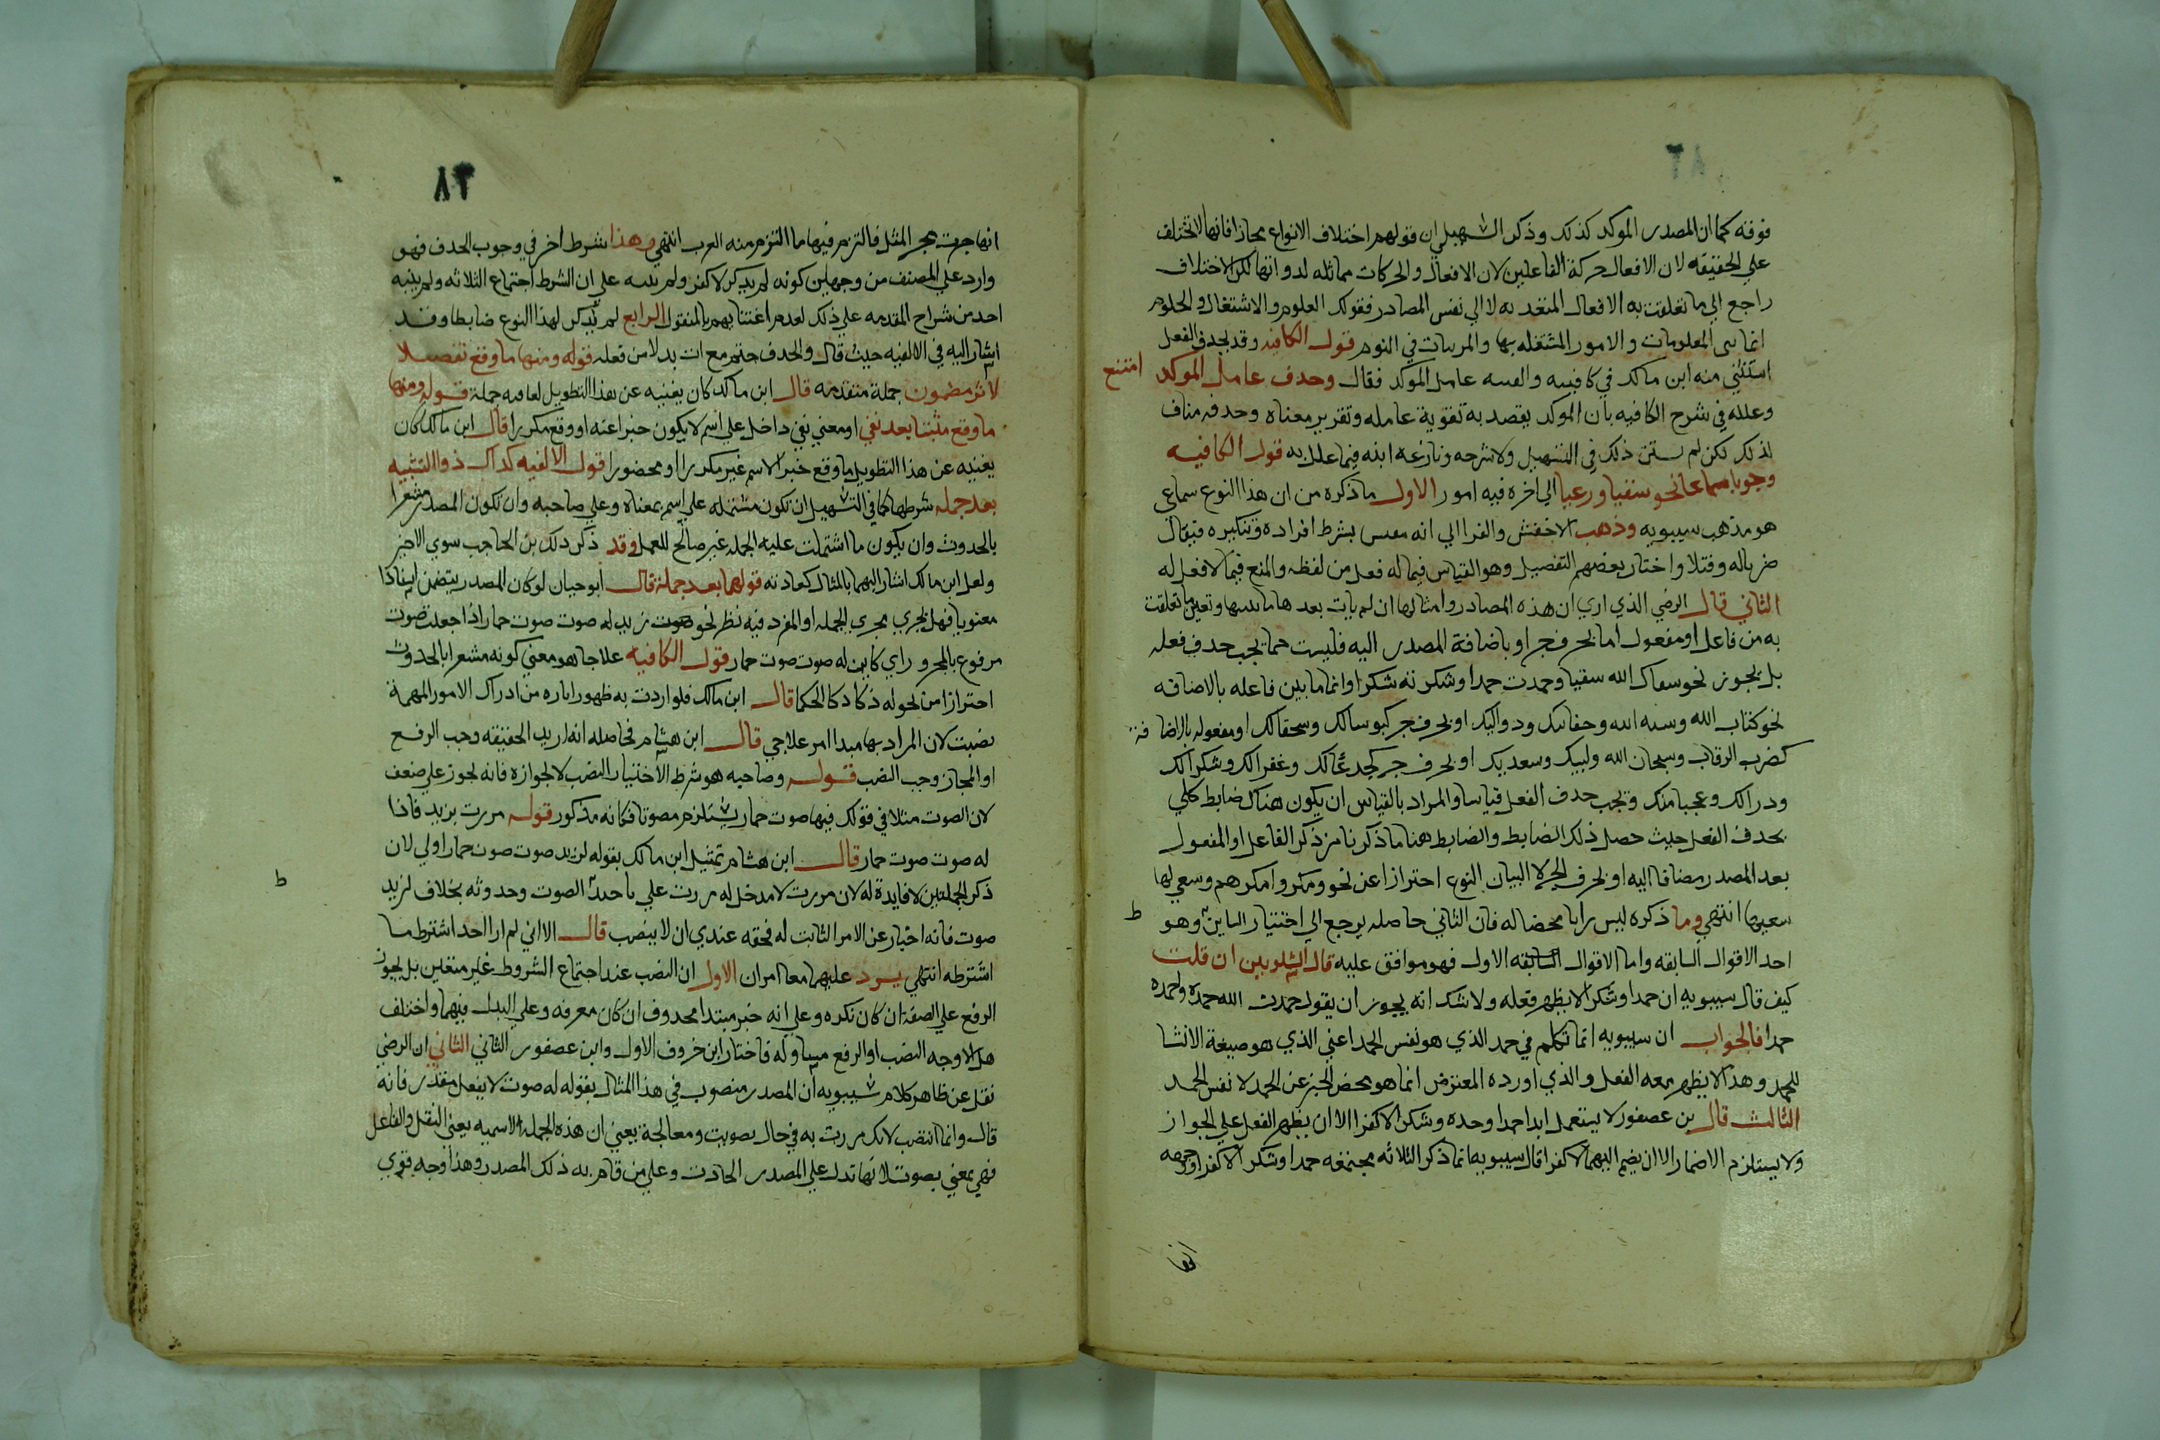 فوقه كما ان المصدر الموكد كذلك وذكر التسهيل ان قولهم اختلاف الانواع مجاز فانها لا تختلف
علي الحقيقه لان الافعال حركة الفاعلين لان الافعال والحركات مماثله لذواتها لكن الاختلاف
راجع الي ما تعلقت به الافعال المتعديه لا الي نفس المصادر فقولك العلوم والاشتغال والحلوم
انما هي المعلومات والامور المشتغله بها والمريات في النوم قول الكافيه وقد يحذف الفعل
استثني منه ابن مالك في كافيته والفيته عامل الموكد فقال وحذف عامل الموكد امتنع
وعلله في شرح الكافيه بان الموكد يقصد به تقوية عامله وتقرير معناه وحذفه مناف
لذلك لكن لم يستثن ذلك في التسهيل ولا شرحه ونازعه ابنه فيما علل به قول الكافيه
وجوبا سماعا نحو سقيا ورعيا الي اخره فيه امور الاول ما ذكره من ان هذا النوع سماعي
هو مذهب سيبويه وذهب الاخفش والفرا الي انه مقيس بشرط افراده وتنكيره فيقال
ضربا له وقتلا واختار بعضهم التفصيل وهو القياس فيما له فعل من لفظه والمنع فيما لا فعل له
الثاني قال الرضي الذي اري ان هذه المصادر وامثالها ان لم يات بعدها ما يبينها وتعين ما تعلقت
به من فاعل او مفعول اما بحرف جر او باضافة المصدر اليه فليست مما يجب حذف فعله
بل يجوز نحو سقاك الله سقيا وحمدت حمدا وشكرته شكرا واما ما بين فاعله بالاضافه
نحو كتاب الله وسنة الله وحنانيك ودواليك او بحرف جر كبوسا لك وسحقا لك او مفعوله بالاضافة
كضرب الرقاب وسبحان الله ولبيك وسعديك او بحرف جر كجدعا لك وغفرا لك وشكرا لك
ودرا لك وعجبا منك ويجب حذف الفعل قياسا والمراد بالقياس ان يكون هناك ضابط كلي
بحذف الفعل حيث حصل ذلك الضابط والضابط هنا ما ذكرنا من ذكر الفاعل او المفعول
بعد المصدر مضافا اليه او بحرف الجر لا لبيان النوع احترازا عن نحو ومكروا مكرهم وسعي لها
سعيها انتهي وما ذكره ليس رايا محضا له فان الثاني حاصله يرجع الي اختيار الباين وهو
احد الاقوال السابقه واما الاقوال السابقه الاول فهو موافق عليه قال الشلوبين ان قلت
كيف قال سيبويه ان حمدا وشكرا لا يظهر فعله ولا شك انه يجوز ان يقول حمدت الله حمدا واحمده
حمدا فالجواب ان سيبويه انما تكلم في حمد الذي هو نفس الحمد اعني الذي هو صيغة الانشا
للحمد وهذا لا يظهر معه الفعل والذي اورده المعترض انما هو محض الخبر عن الحمد لا نفس الحمد
الثالث قال بن عصفور لا يستعمل ابدا حمدا وحده وشكرا لا كفرا الا ان يظهر الفعل علي الجواز
ولا يستلزم الاضمار الا ان يضم اليهما لا كفرا قال سيبويه انما ذكر الثلاثه مجتمعه حمدا وشكرا لا كفرا ووجهه
انها
٨٢
انها جرت مجر المثل فالتزم فيها ما التزم منه العرب انتهي وهذا شرط اخر في وجوب الحذف فهو
وارد علي المصنف من وجهين كونه لم يذكر لا كفرا ولم ينبه علي ان الشرط اجتماع الثلاثه ولم ينبه
احد من شراح المقدمه علي ذلك لعدم اعتنايهم بالمنقول الرابع لم يذكر لهذا النوع ضابطا وقد
اشار اليه في الالفيه حيث قال والحذف حتم مع ات بدلا من فعله قوله ومنها ما وقع تفصيلا
لاثر مضمون جملة متقدمه قال ابن مالك كان يغنيه عن هذا التطويل لعاقبه جملة قوله ومنها
ما وقع مثبتا بعد نفي او معني نفي داخل علي اسم لا يكون خبرا عنه او وقع مكررا قال ابن مالك كان
يغنيه عن هذا التطويل ما وقع خبر الاسم غير مكررا او محضورا قول الالفيه كذاك ذو التشبيه
بعد جمله شرطها كما في التسهيل ان تكون مشتمله علي اسم بمعناه وعلي صاحبه وان تكون المصدر مشعرا
بالحدوث وان يكون ما اشتملت عليه الجمله غير صالح للعمل وقد ذكر ذلك بن الحاجب سوي الاخير
ولعل ابن مالك اشار اليهما بالمثال كعادته قولهما بعد جملة قال ابو حيان لو كان المصدر يتضمن اسنادا
معنويا فهل يجري مجري الجمله او المفرد فيه نظر نحو صوت زيد له صوت صوت حمار اذا جعلت صوت
مرفوع بالمجرور اي كاين له صوت صوت حمار قول الكافيه علاجا هو معني كونه مشعرا بالحدوث
احترازا من نحو له ذكا ذكا الحكما قال ابن مالك فلو اردت به ظهور اباره من ادراك الامور المهمة
نصبت لان المراد بها مبدا امر علاجي قال ابن هشام فحاصله انه اريد الحقيقه وجب الرفع
او المجاز وجب النصب قوله وصاحبه هو شرط الاختيار النصب لا لجوازه فانه يجوز علي ضعف
لان الصوت مثلا في قولك فيها صوت حمار يستلزم مصوتا فكانه مذكور قوله مررت بزيد فاذا
له صوت صوت حمار قال ابن هشام تمثيل ابن مالك بقوله لزيد صوت صوت حمار اولي لان
ذكر الجملتين لا فايدة له لان مررت لا مدخل له مررت علي ما احد الصوت وحدوثه بخلاف لزيد
صوت فانه اخبار عن الامر الثابت له فحقه عندي ان لا ينصب قال الا اني لم ار احدا اشترط ما
اشترطه انتهي يرد عليهما معا امران الاول ان النصب عند اجتماع الشروط غير متعين بل يجوز
الرفع علي الصفة ان كان نكره وعلي انه خبر مبتدا محذوف ان كان معرفه وعلي البدل فيهما واختلف
هل الاوجه النصب او الرفع مساو له فاختار ابن خروف الاول وابن عصفور الثاني الثاني ان الرضي
نقل عن ظاهر كلام سيبويه ان المصدر منصوب في هذا المثال بقوله له صوت لا بفعل مقدر فانه
قال وانما انتصب لانك مررت به في حال تصويت ومعالجة يعني ان هذه الجمله الاسميه يعني الفعل والفاعل
فهي بمعني يصوت لانها تدل علي المصدر الحادث وعلي من قام به ذلك المصدر وهذا وجه قوي